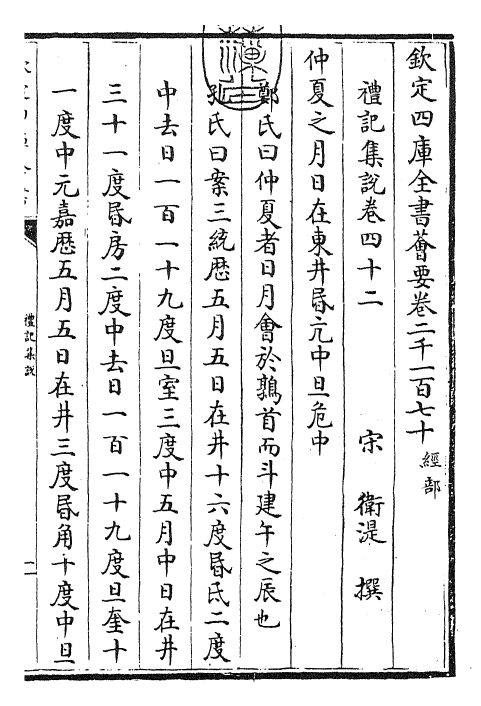 欽定四庫全書薈要卷二千一百七十 經部
禮記集說卷四十二 宋 衛湜 撰
仲夏之月日在東井昬亢中旦危中
鄭氏曰仲夏者日月會於鶉首而斗建午之辰也
孔氏曰案三統歴五月五日在井十六度昬氐二度
中去日一百一十九度旦室三度中五月中日在井
三十一度昬房二度中去日一百一十九度旦奎十
一度中元嘉歴五月五日在井三度昬角十度中旦
禮記集說